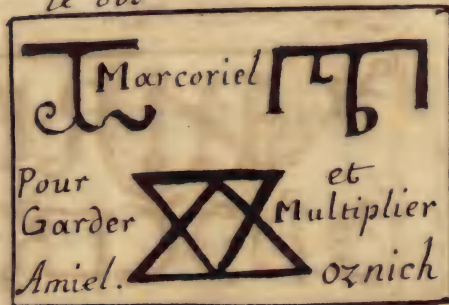 Marcoriel
Pour et
Garder Multiplier
Amiel. oznich